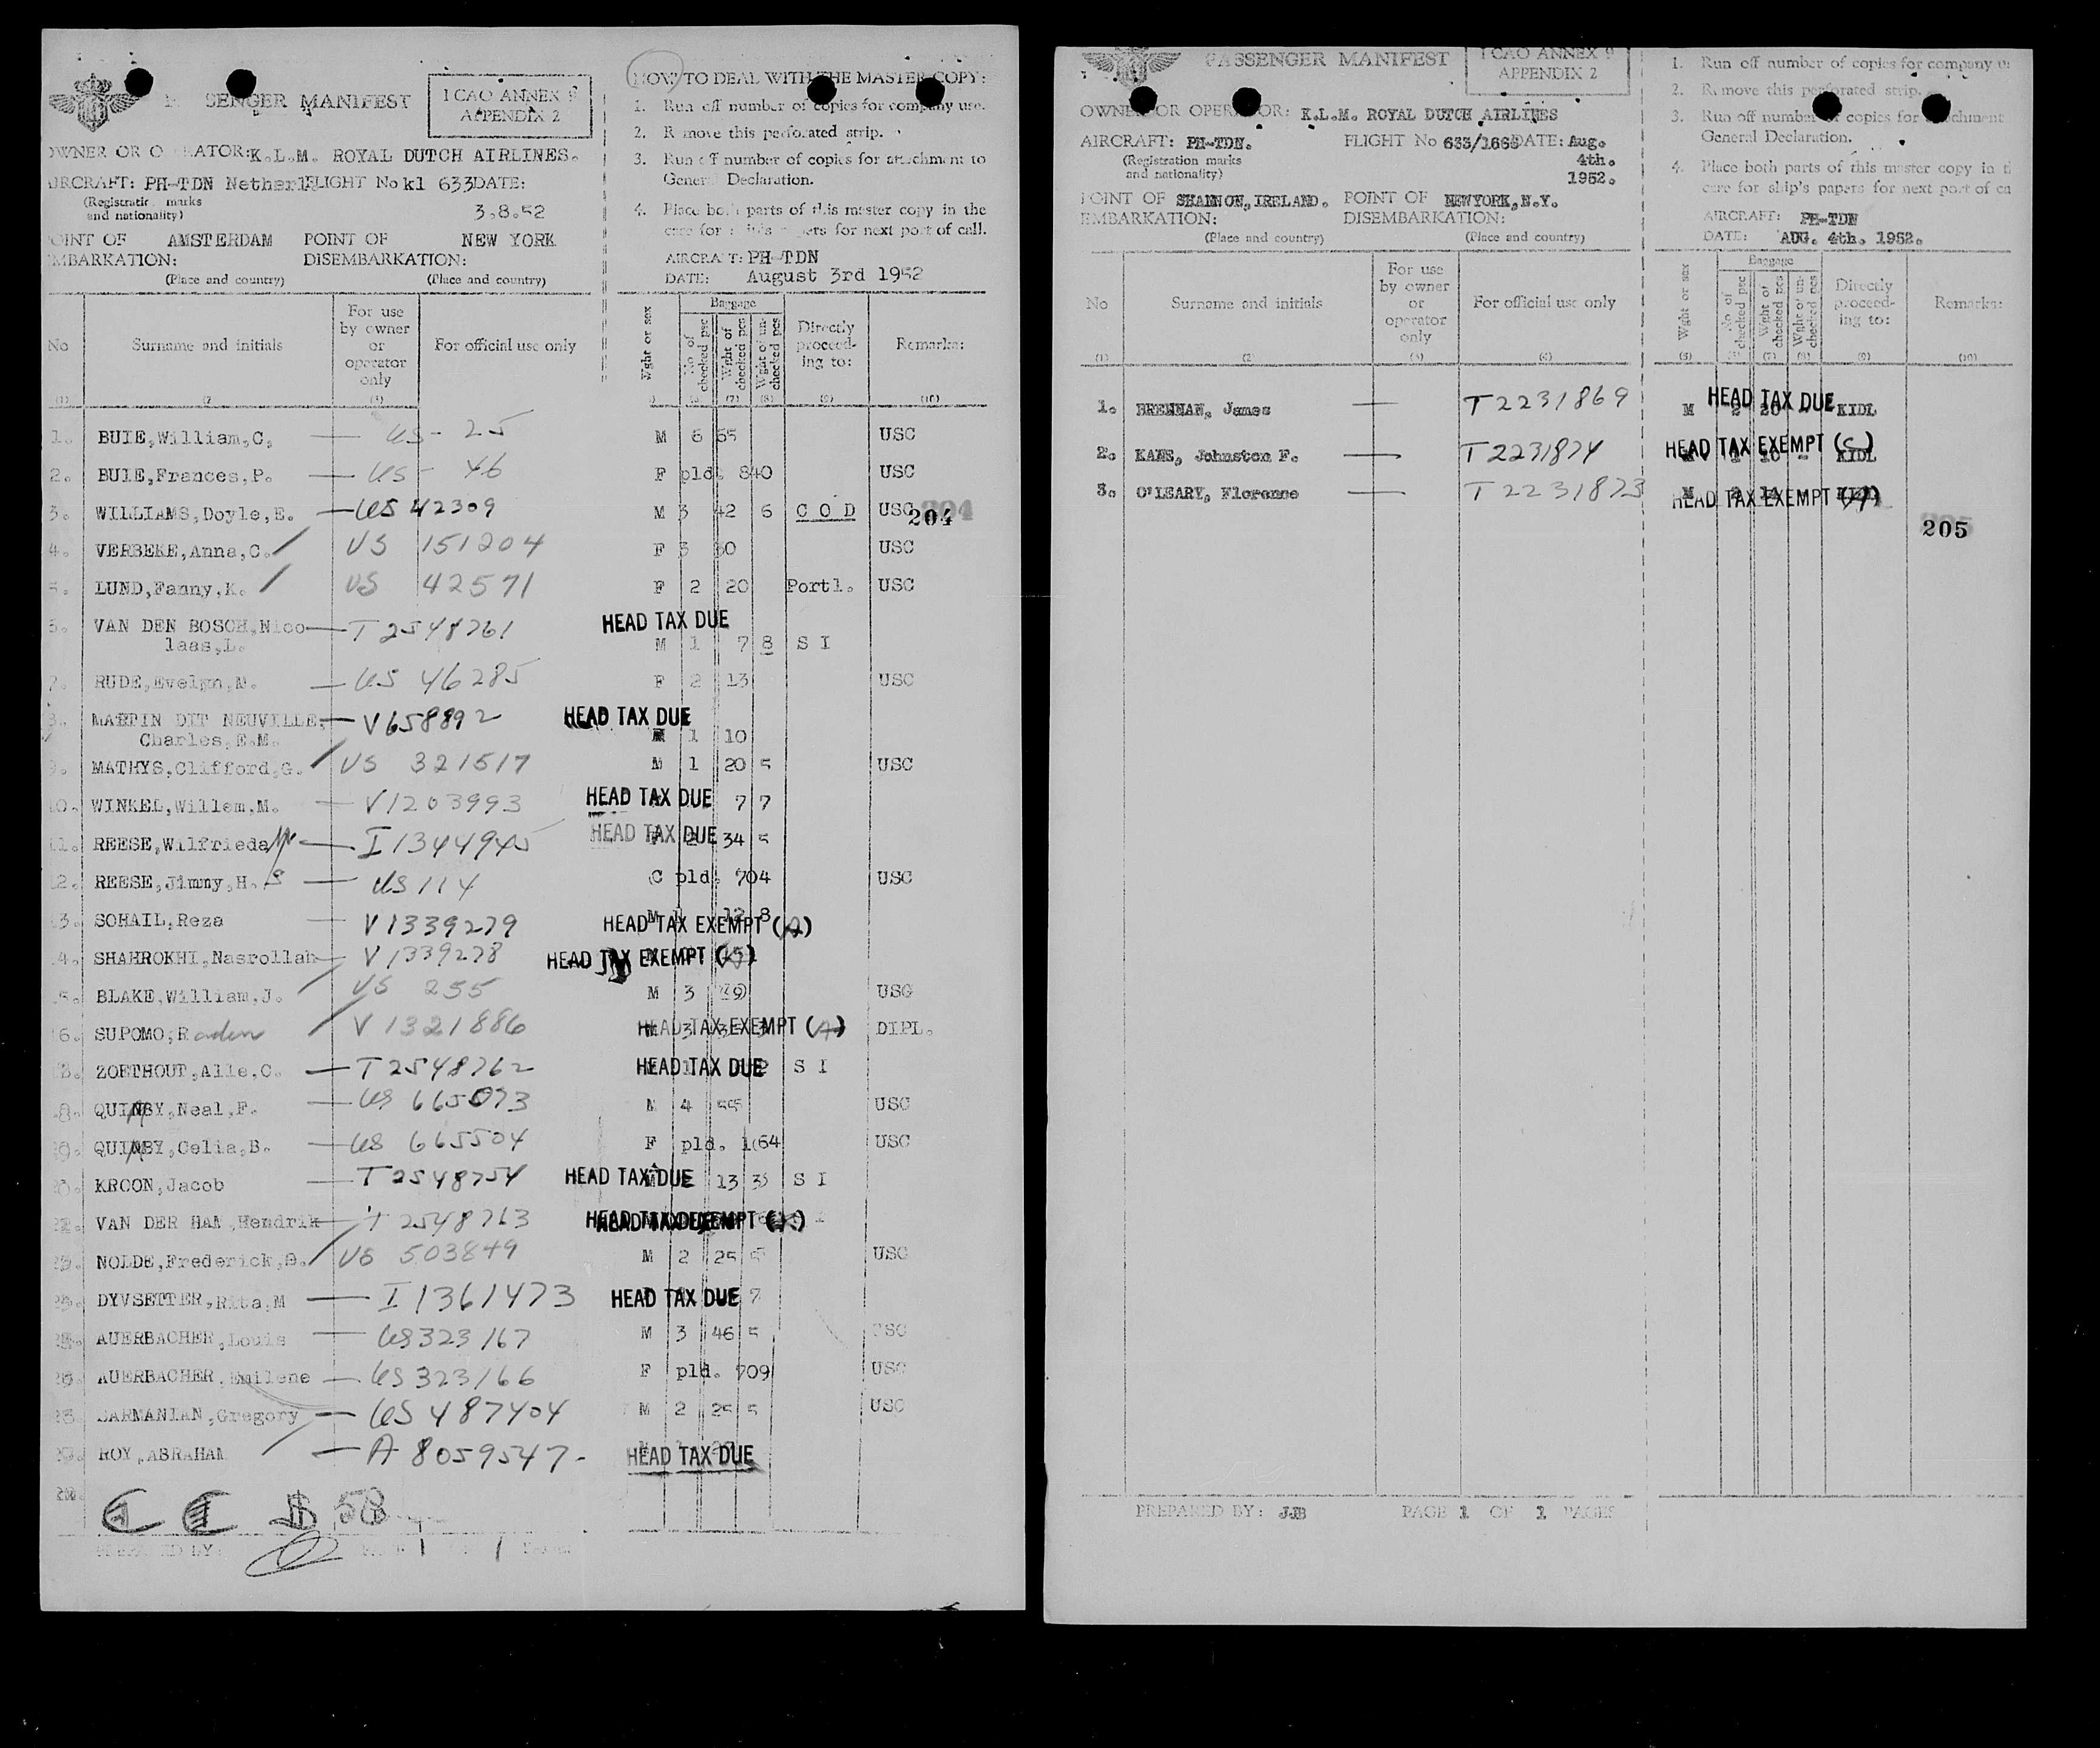 PASSENGER MANIFEST
I CAO ANNEX 9
APPENDIX 2
OWNER OR OPERATOR: K.L.M. ROYAL DUTCH AIRLINES.
AIRCRAFT: PH-TDN Netherl FLIGHT No kl 633 DATE:
(Registration marks
and nationality)
3.8.52
POINT OF AMSTERDAM POINT OF NEW YORK
EMBARKATION: DISEMBARKATION:
(Place and country) (Place and country)
HOW TO DEAL WITH THE MASTER COPY:
1. Run off number of copies for company use.
2. Remove this perforated strip.
3. Run off number of copies for attachment to
General Declaration.
4. Place both parts of this master copy in the
care for ship's papers for next port of call.
AIRCRAFT: PH-TDN
DATE: August 3rd 1952
No Surname and initials For use by owner or operator only For official use only Wght or sex Baggage No of checked pcs Wght of checked pcs Wght of un-checked pcs Directly proceed-ing to: Remarks:
1. BUIE,William,C, — US - 25 M 6 65 USC
2. BUIE,Frances,P. — US - 46 F pld. 840 USC
3. WILLIAMS,Doyle,E. — US 42309 M 3 42 6 C O D USC
204
4. VERBEKE,Anna,C. / US 151204 F 3 30 USC
5. LUND,Fanny,K. / US 42571 F 2 20 Portl. USC
6. VAN DEN BOSCH,Nico — T 2548761 HEAD TAX DUE
laas,L. M 1 7 8 S I
7. RUDE,Evelyn,M. — US 46285 F 2 13 USC
8. MARTIN DIT NEUVILLE, — V658892 HEAD TAX DUE
Charles,E.M. M 1 10
9. MATHYS,Clifford,G. / US 321517 M 1 20 5 USC
10. WINKEL,Willem,M. — V1203993 HEAD TAX DUE 7 7
11. REESE,Wilfrieda — I 1344945 HEAD TAX DUE 34 5
12. REESE,Jimmy,H. S — US 114 C pld. 704 USC
13. SOHAIL,Reza — V1339279 M 12 8 HEAD TAX EXEMPT (A)
14. SHAHROKHI,Nasrollah — V1339278 HEAD TAX EXEMPT
15. BLAKE,William,J. / US 255 M 3 39 USC
16. SUPOMO,Raden / V1321886 HEAD TAX EXEMPT (A) DIPL.
ZOETHOUT,Alle,C. — T 2548762 HEAD TAX DUE S I
18. QUIMBY,Neal,F. — US 665073 M 4 55 USC
19. QUIMBY,Celia,B. — US 665504 F pld. 1064 USC
20. KROON,Jacob — T 2548754 HEAD TAX DUE 13 3 S I
VAN DER HAM,Hendrik — T 2548763 HEAD TAX EXEMPT
NOLDE,Frederick / US 503849 M 2 25 5 USC
DYVSETTER,Rita,M — I 1361473 HEAD TAX DUE 7
AUERBACHER,Louis — US323167 M 3 46 5 USC
AUERBACHER,Emilene — US323166 F pld. 709 USC
SARMANIAN,Gregory — US 487404 M 2 25 5 USC
ROY,ABRAHAM — A 8059547- HEAD TAX DUE
$ 58
PREPARED BY: PAGE 1 OF 1 PAGES
PASSENGER MANIFEST
I CAO ANNEX 9
APPENDIX 2
OWNER OR OPERATOR: K.L.M. ROYAL DUTCH AIRLINES
AIRCRAFT: PH-TDN. FLIGHT No 633/1665 DATE: Aug.
4th.
1952.
(Registration marks
and nationality)
POINT OF SHANNON,IRELAND. POINT OF NEWYORK,N.Y.
EMBARKATION: DISEMBARKATION:
(Place and country) (Place and country)
1. Run off number of copies for company
2. Remove this perforated strip.
3. Run off number of copies for attachment
General Declaration.
4. Place both parts of this master copy in
care for ship's papers for next port of ca
AIRCRAFT: PH-TDN
DATE: AUG. 4th. 1952.
No Surname and initials For use by owner or operator only For official use only Wght or sex Baggage No of checked pcs Wght of checked pcs Wght of un-checked pcs Directly proceed-ing to: Remarks:
(1) (2) (3) (4) (5) (6) (7) (8) (9) (10)
1. BRENNAN, James — T2231869 HEAD TAX DUE M 2 20 - KIDL
2. KANE, Johnston F. — T2231874 HEAD TAX EXEMPT (C) KIDL
3. O'LEARY, Florence — T2231873 HEAD TAX EXEMPT (A)
205
PREPARED BY: JJB PAGE 1 OF 1 PAGES